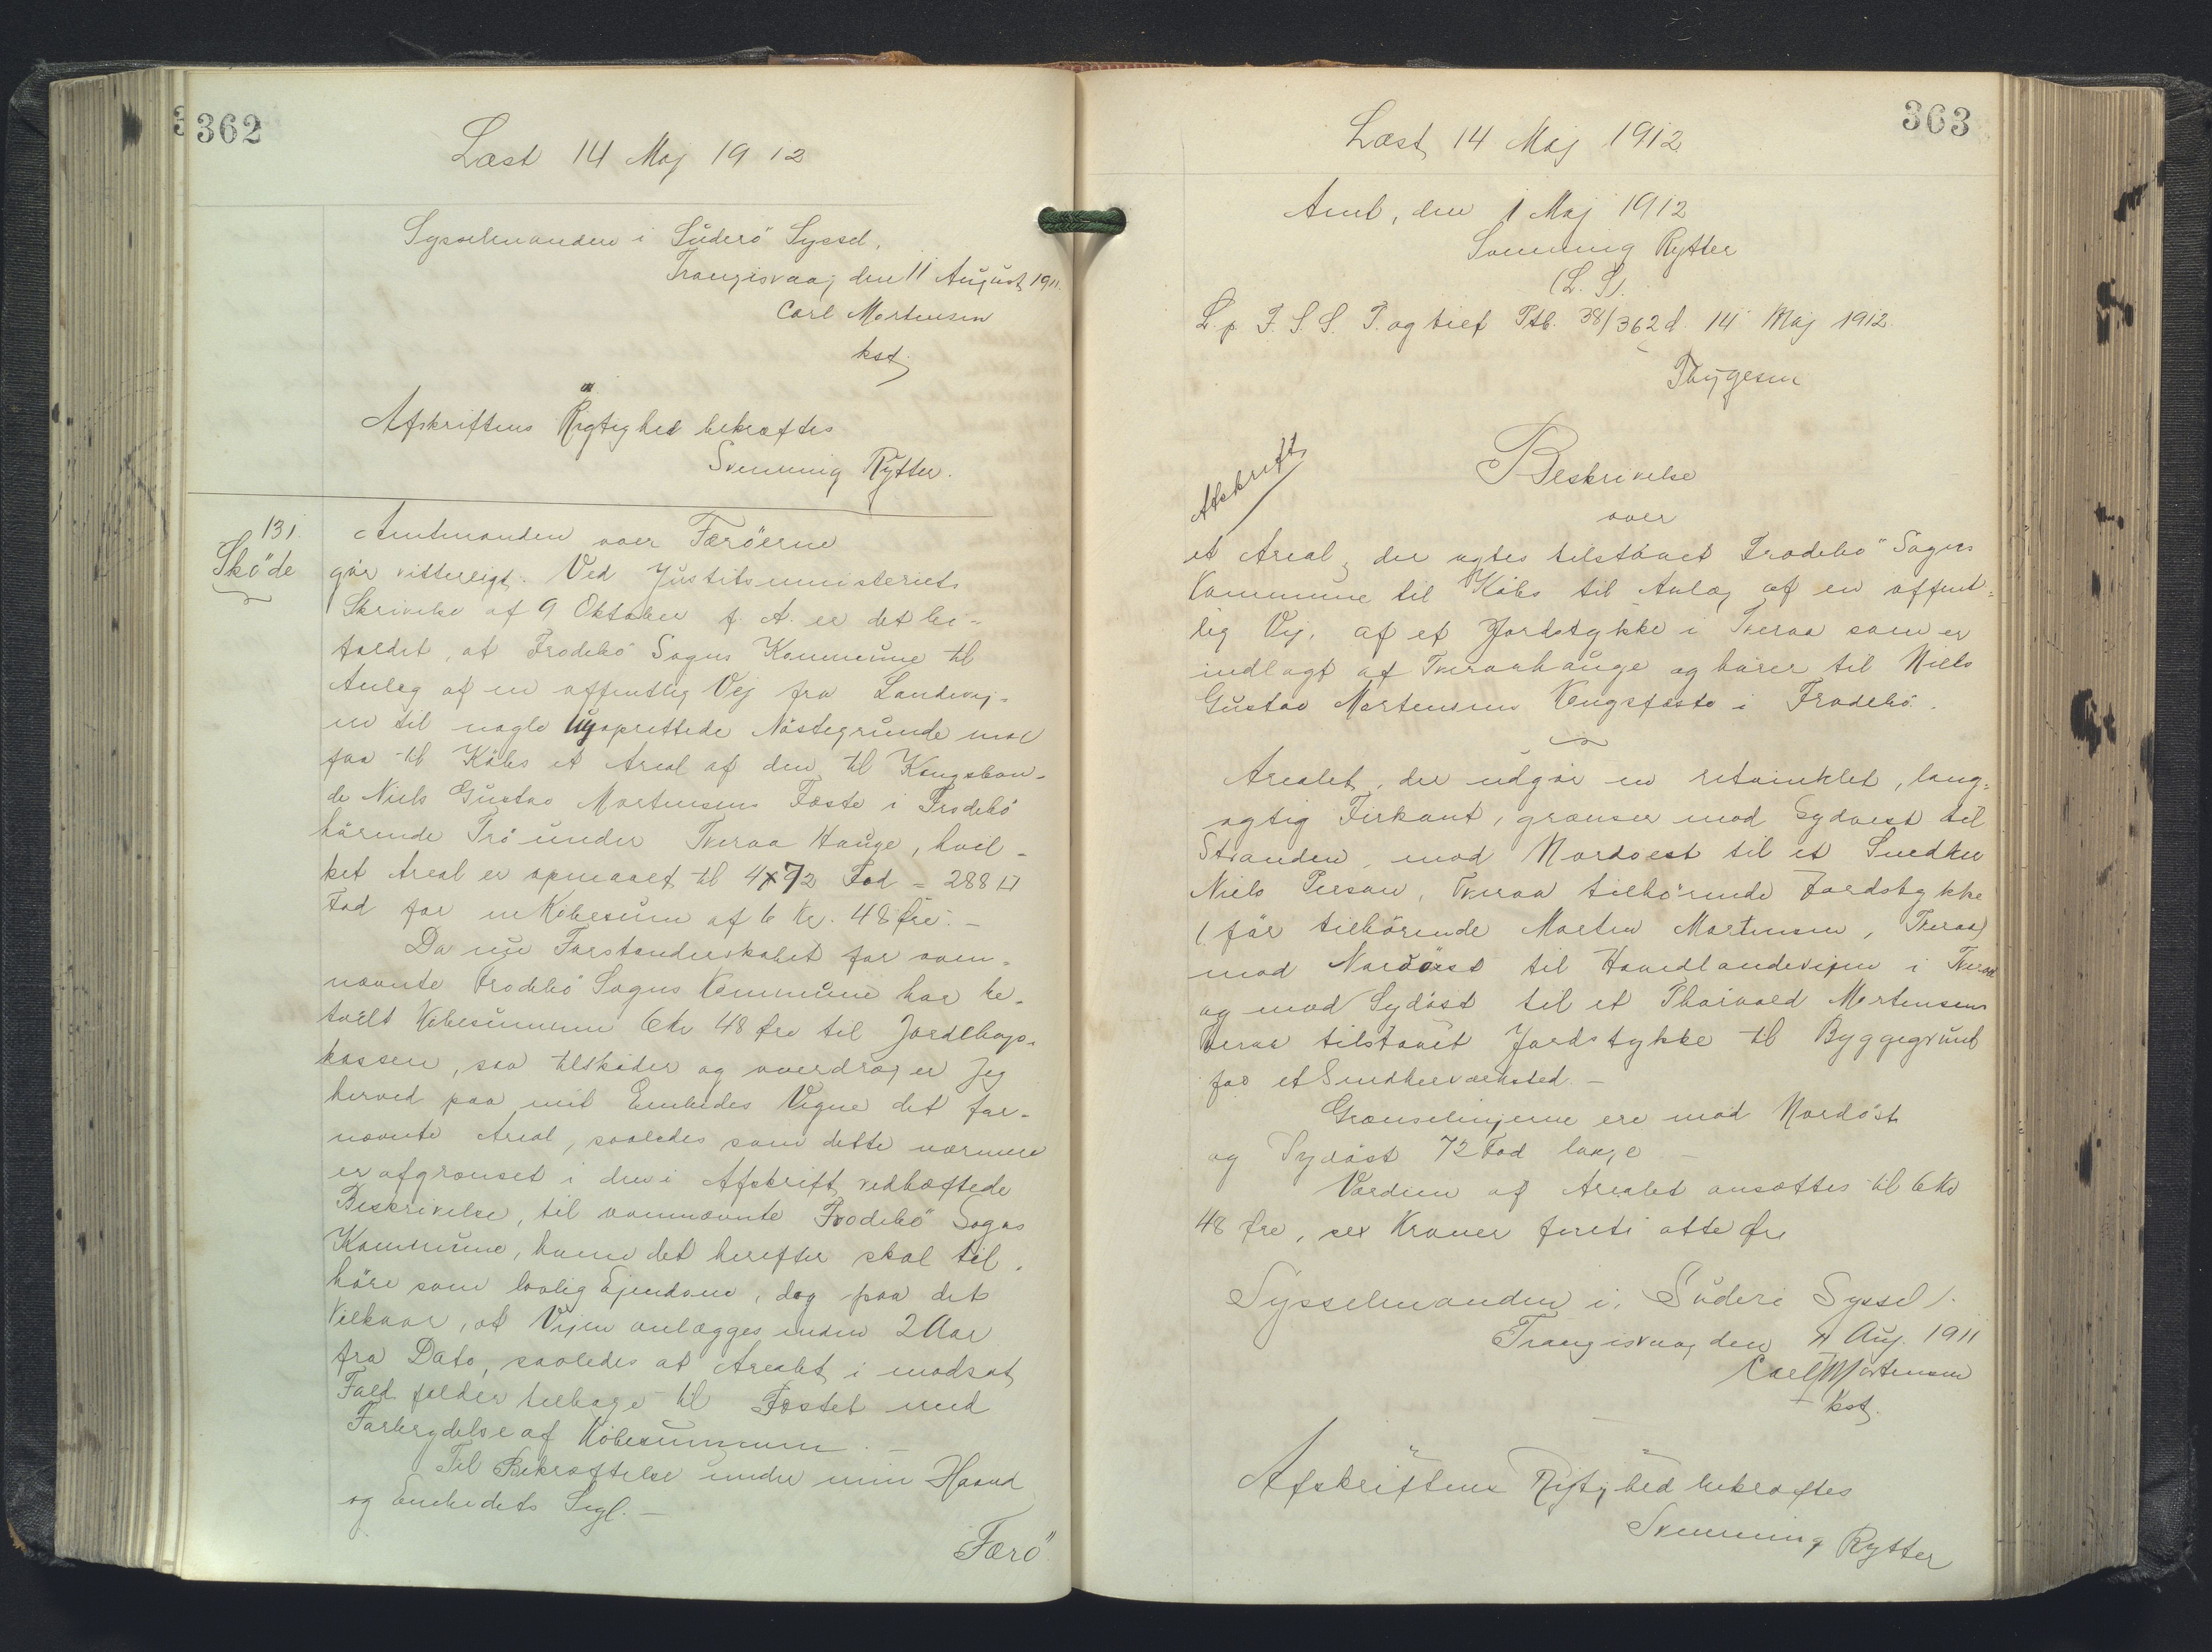 362
Læst 14 Maj 1912
Sysselmanden i Süderö Syssel,
Trangisvaag den 11 August 1911.
Carl Mortensen
kst.
Afskriftens Rigtighed bekræftes
Svenning Rytter.
131.
Sköde
Amtmanden over Færöerne
gör vitterligt: Ved Justitsministeriets
Skrivelse af 9 Oktober f. A. er det bi-
faldet, at Frodebö Sogns Kommune til
Anlæg af en offentlig Vej fra Landevej-
en til nogle nyoprettede Nöstegrunde maa
faa til Köbs et Areal af den til Kongsbon-
de Niels Gustav Mortensens Fæste i Frodebö
hörende Trö under Tveraa Hauge, hvil-
ket Areal er opmaalt til 4x72 Fod = 288 □
Fod for en Köbesum af 6 Kr. 48 Øre. -
Da nu Forstanderskabet for oven-
nævnte Frodebö Sogns Kommune har be-
talt Köbesummen 6 Kr 48 Øre til Jordebogs-
kassen, saa tilsköder og overdrager jeg
herved paa mit Embedes Vegne det for-
nævnte Areal, saaledes som dette nærmere
er afgrænset i den i Afskrift vedhæftede
Beskrivelse, til ovennævnte Frodebö Sogns
Kommune, hvem det herefter skal til-
höre som lovlig Ejendom, dog paa det
Vilkaar, at Vejen anlægges inden 2 Aar
fra Dato, saaledes at Arealet i modsat
Fald falder tilbage til Fæstet med
Forbrydelse af Köbesummen. -
Til Bekræftelse under min Haand
og Embedets Segl. -
Færö
363
Læst 14 Maj 1912
Amt, den 1 Maj 1912
Svenning Rytter
(L. S.)
L. p F. S. S. T. og tilf Ptb. 38/362 d. 14 Maj 1912.
Thygesen
Afskrift
Beskrivelse
over
et Areal, der agtes tilstaaet Frodebö Sogns
Kommune til Köbs til Anlæg af en offent-
lig Vej, af et Jordstykke i Tveraa som er
indlagt af Tveraahauge og hörer til Niels
Gustav Mortensens Kongsfæste i Frodebö.
Arealet, der udgör en retvinklet, lang-
agtig Firkant, grænser mod Sydvest til
Stranden, mod Nordvest til et Snedker
Niels Person, Tveraa tilhörende Jordstykke
(för tilhörende Morten Mortensen, Tveraa)
mod Nordöst til Hovedlandevejen i Tveraa
og mod Sydöst til et Thorvald Mortensens
Tveraa tilstaaet Jordstykke til Byggegrund
for et Snedkerværksted. -
Grænselinjerne ere mod Nordöst
og Sydöst 72 Fod lange -
Værdien af Arealet ansættes til 6 Kr
48 Øre, sex Kroner fireti otte Øre
Sysselmanden i Süderö Syssel.
Trangisvaag den 11 Aug. 1911
Carl Mortensen
kst.
Afskriftens Rigtighed bekræftes
Svenning Rytter